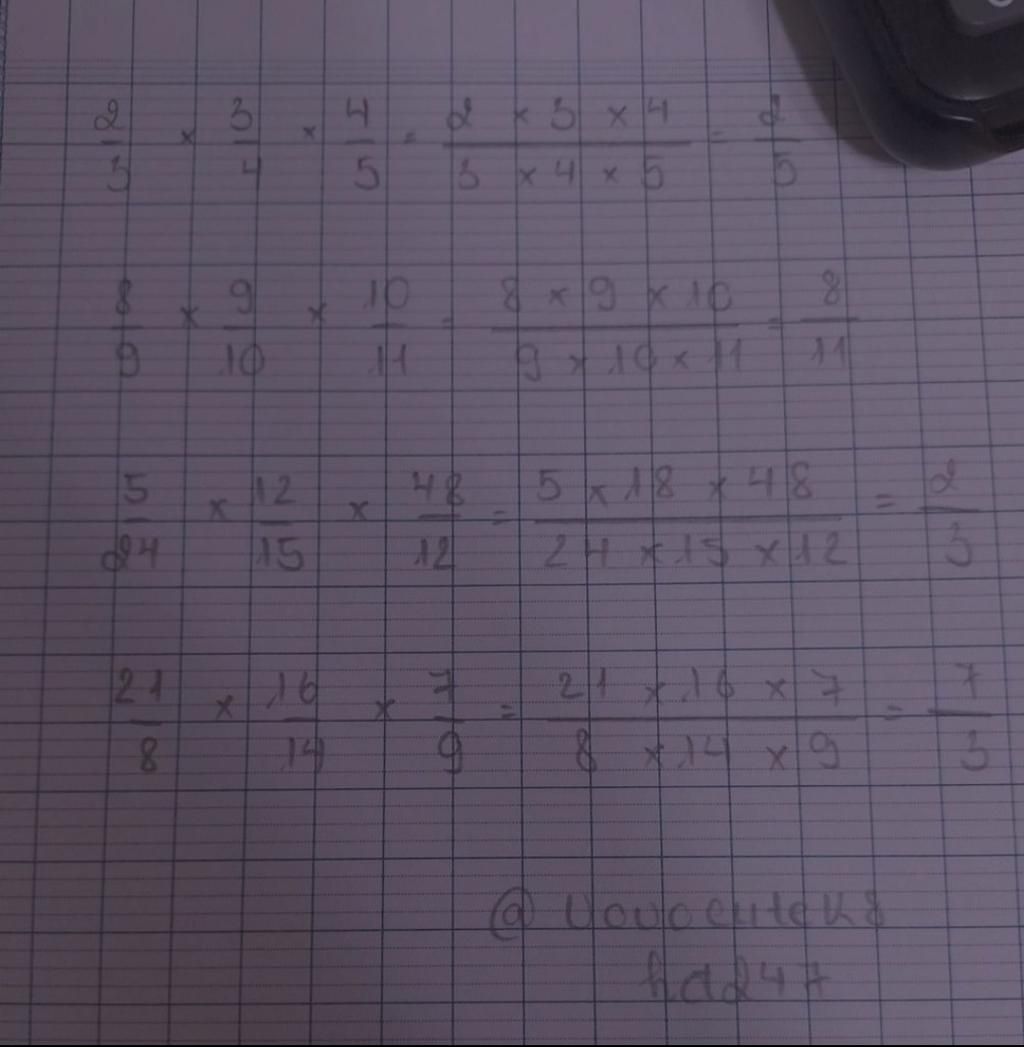 2/3 × 3/4 × 4/5 = 2 × 3 × 4 / 3 × 4 × 5 = 2/5
8/9 × 9/10 × 10/11 = 8 × 9 × 10 / 9 × 10 × 11 = 8/11
5/24 × 12/15 × 48/12 = 5 × 18 × 48 / 24 × 15 × 12 = 2/3
21/8 × 16/14 × 7/9 = 21 × 16 × 7 / 8 × 14 × 9 = 7/3